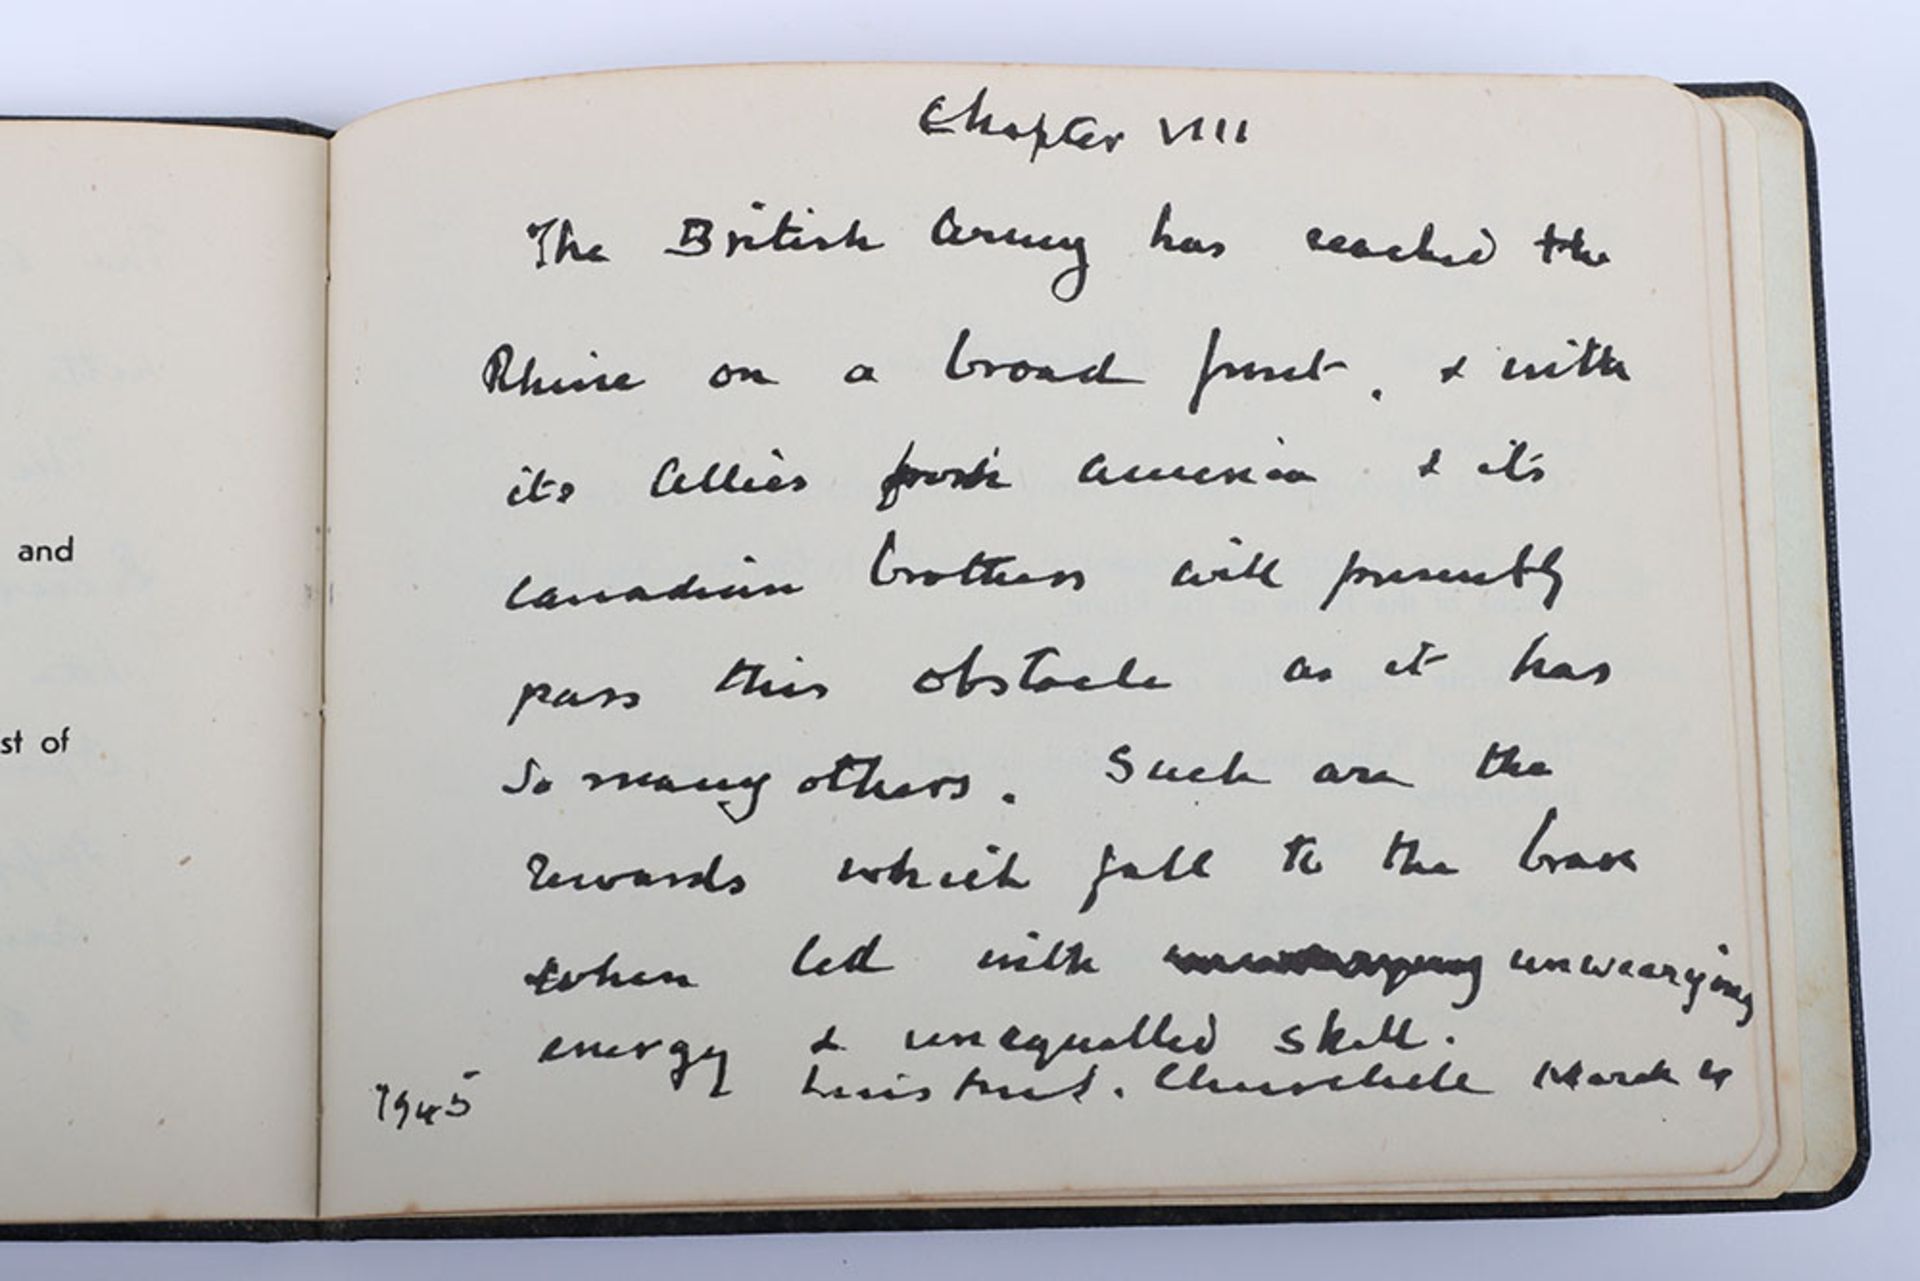 and
st of
Chapter VIII
The British Army has reached the
Rhine on a broad front, & with
its Allies from America & its
Canadian brothers will presently
pass this obstacle as it has
so many others. Such are the
rewards which fall to the brave
when led with unwearying
energy & unequalled skill.
Winston S. Churchill March
1945